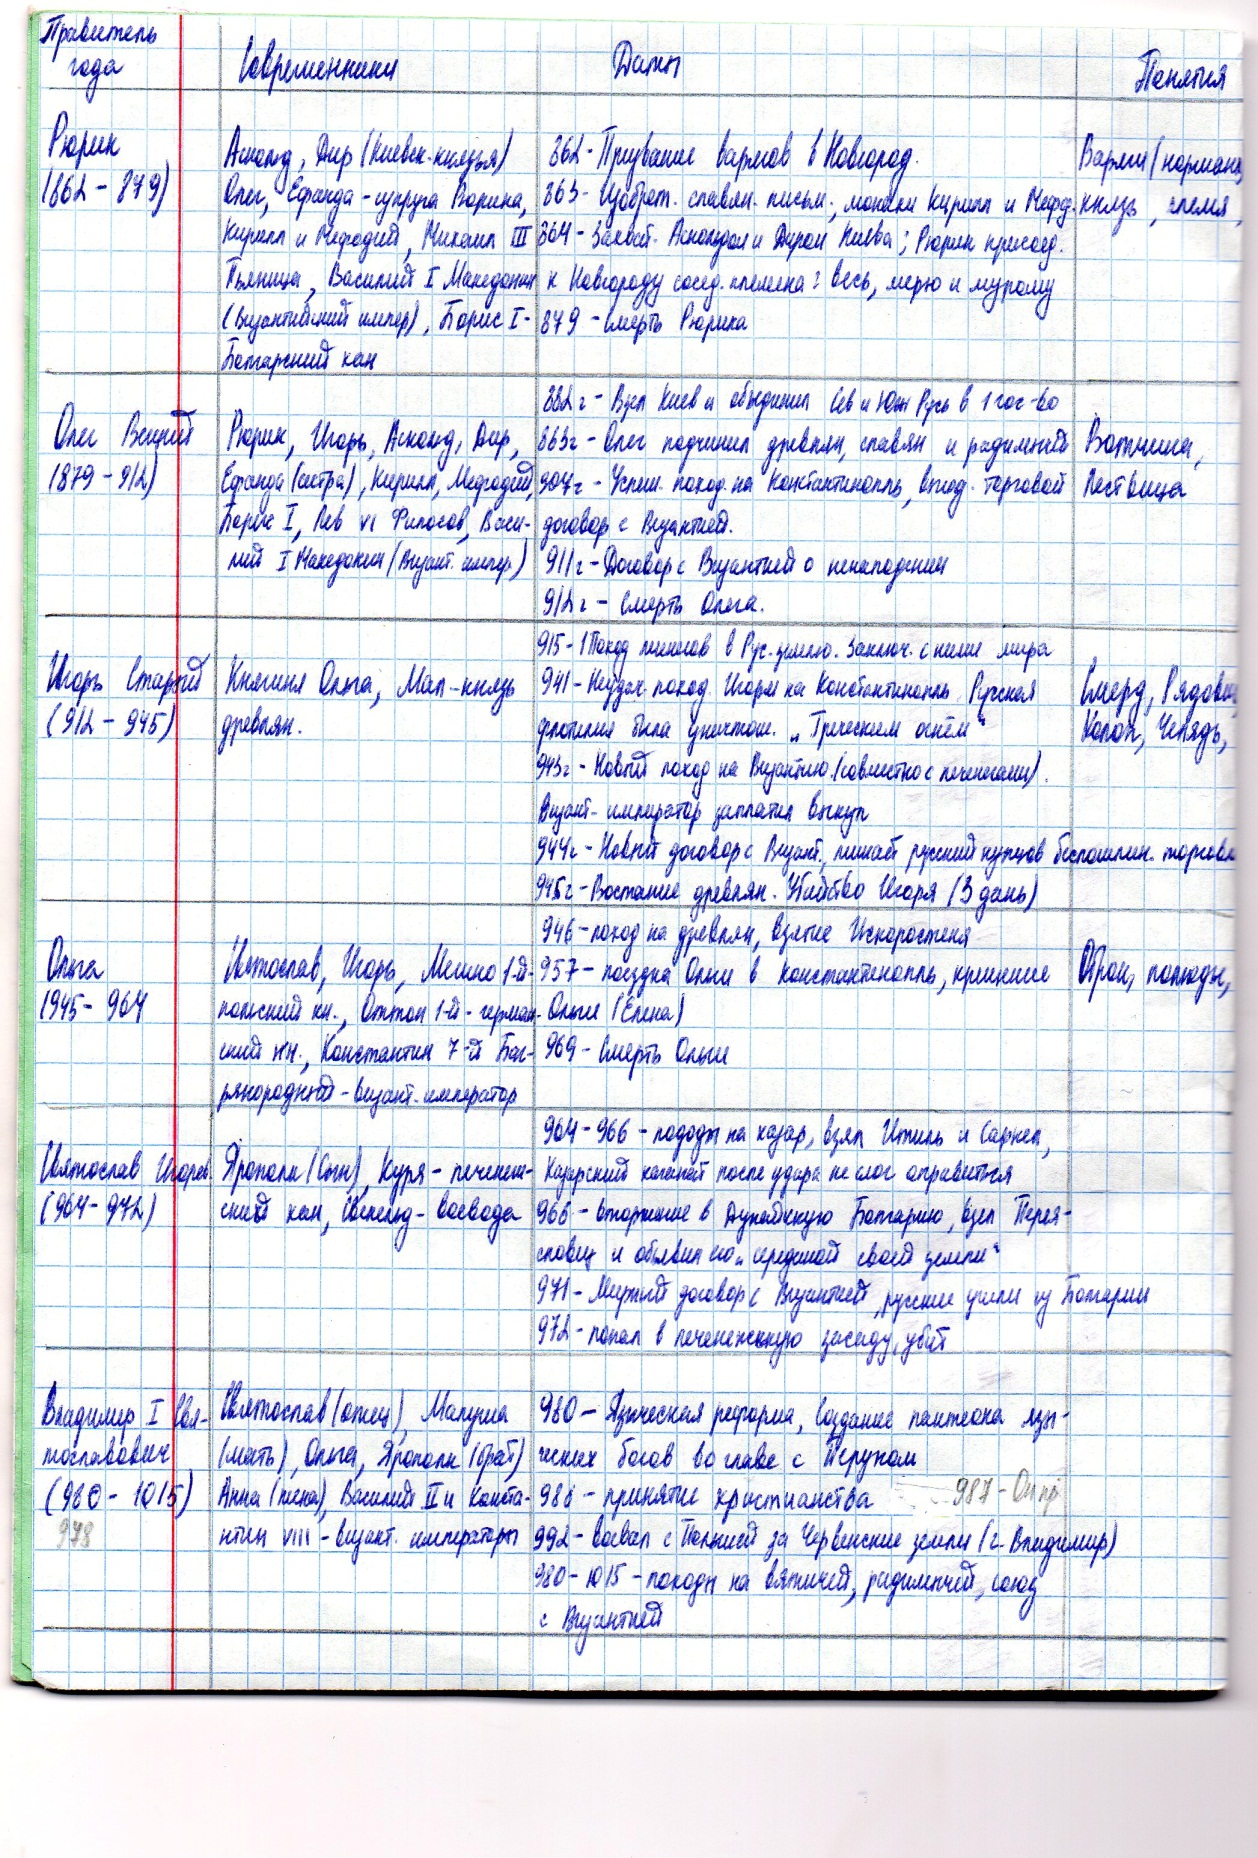 Правитель года
Современники
Даты
Понятия
Рюрик
(862 - 879)
Аскольд, Дир (Киевск. князья)
Олег, Ефанда - супруга Рюрика,
Кирилл и Мефодий, Михаил III
Пьяница, Василий I Македонян
(Византийский импер), Борис I -
Болгарский хан
862 - Призвание варягов в Новгород.
863 - Изобрет. славян. письм., монахи Кирилл и Мефод.
864 - Захват. Аскольдом и Диром Киева; Рюрик присоед.
к Новгороду сосед. племена: весь, мерю и мурому
879 - смерть Рюрика
Варяги (норманн
князь, племя,
Олег Вещий
(879 - 912)
Рюрик, Игорь, Аскольд, Дир,
Ефанда (сестра), Кирилл, Мефодий,
Борис I, Лев VI Философ, Васи-
лий I Македонян (Визант. импер.)
882 г - Взял Киев и объединил Сев и Юж Русь в 1 гос-во
883г - Олег подчинил древлян, славян и радимичей
907г - Успеш. поход на Константинополь, выгод. торговой
договор с Византией.
911г - Договор с Византией о ненападении
912г - Смерть Олега.
Вотчина,
Лествица
Игорь Старый
(912 - 945)
Княгиня Ольга, Мал - князь
древлян.
915 - 1 Поход печенегов в Рус. землю. Заключ. с ними мира
941 - Неудач. поход. Игоря на Константинополь. Русская
флотилия была уничтож. „Греческим огнём“
943г - Новый поход на Византию (совместно с печенегами).
Визант. император заплатил выкуп
944г - Новый договор с Визант., лишает русский купцов беспошлин. торговл
945г - Востание древлян. Убийство Игоря (3 дань)
Смерд, Рядович
Холоп, Челядь,
Ольга
1945 - 964
Святослав, Игорь, Мешко 1-й -
польский кн., Оттон 1-й - герман-
ский кн., Константин 7-й Баг-
рянородный - визант. император
946 - поход на древлян, взятие Искоростеня
957 - поездка Ольги в Константинополь, крещение
Ольги (Елена)
969 - Смерть Ольги
Оброк, полюдье,
Святослав Игорев.
(964 - 972)
Ярополк (Сын), Куря - печенеж-
ский хан, Свенельд - воевода
964 - 966 - походы на хазар, взял Итиль и Саркел,
Хазарский каганат после удара не смог оправиться
966 - вторжение в Дунайскую Болгарию, взял Перея-
славец и объявил его „серединой своей земли“
971 - Мирный договор с Византией, русские ушли из Болгарии
972 - попал в печенежскую засаду, убит
Владимир I Свя-
тославович
(980 - 1015)
978
Святослав (отец), Малуша
(мать), Ольга, Ярополк (брат)
Анна (жена), Василий II и Конста-
нтин VIII - визант. императоры
980 - Языческая реформа, создание пантеона язы-
ческих богов во главе с Перуном
988 - принятие христианства 987 -
992 - воевал с Польшей за Червенские земли (г. Владимир)
980 - 1015 - походы на вятичей, радимичей, союз
с Византией